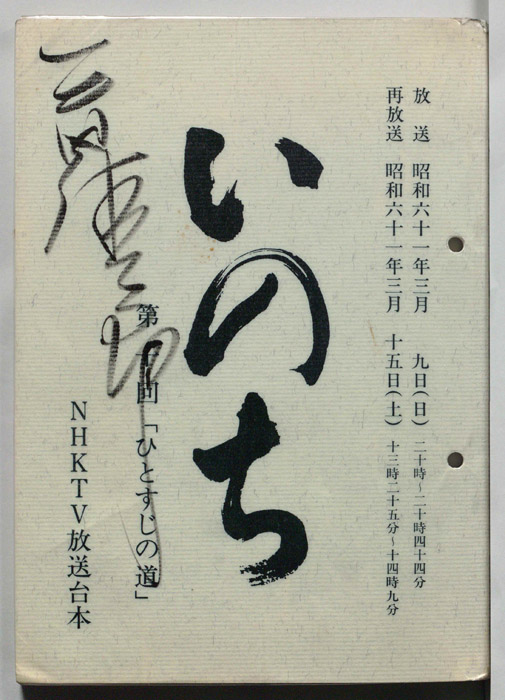 放送 昭和六十一年三月 九日(日) 二十時~二十時四十四分
再放送 昭和六十一年三月 十五日(土) 十三時二十五分~十四時九分
いのち
第十回「ひとすじの道」
NHKTV放送台本